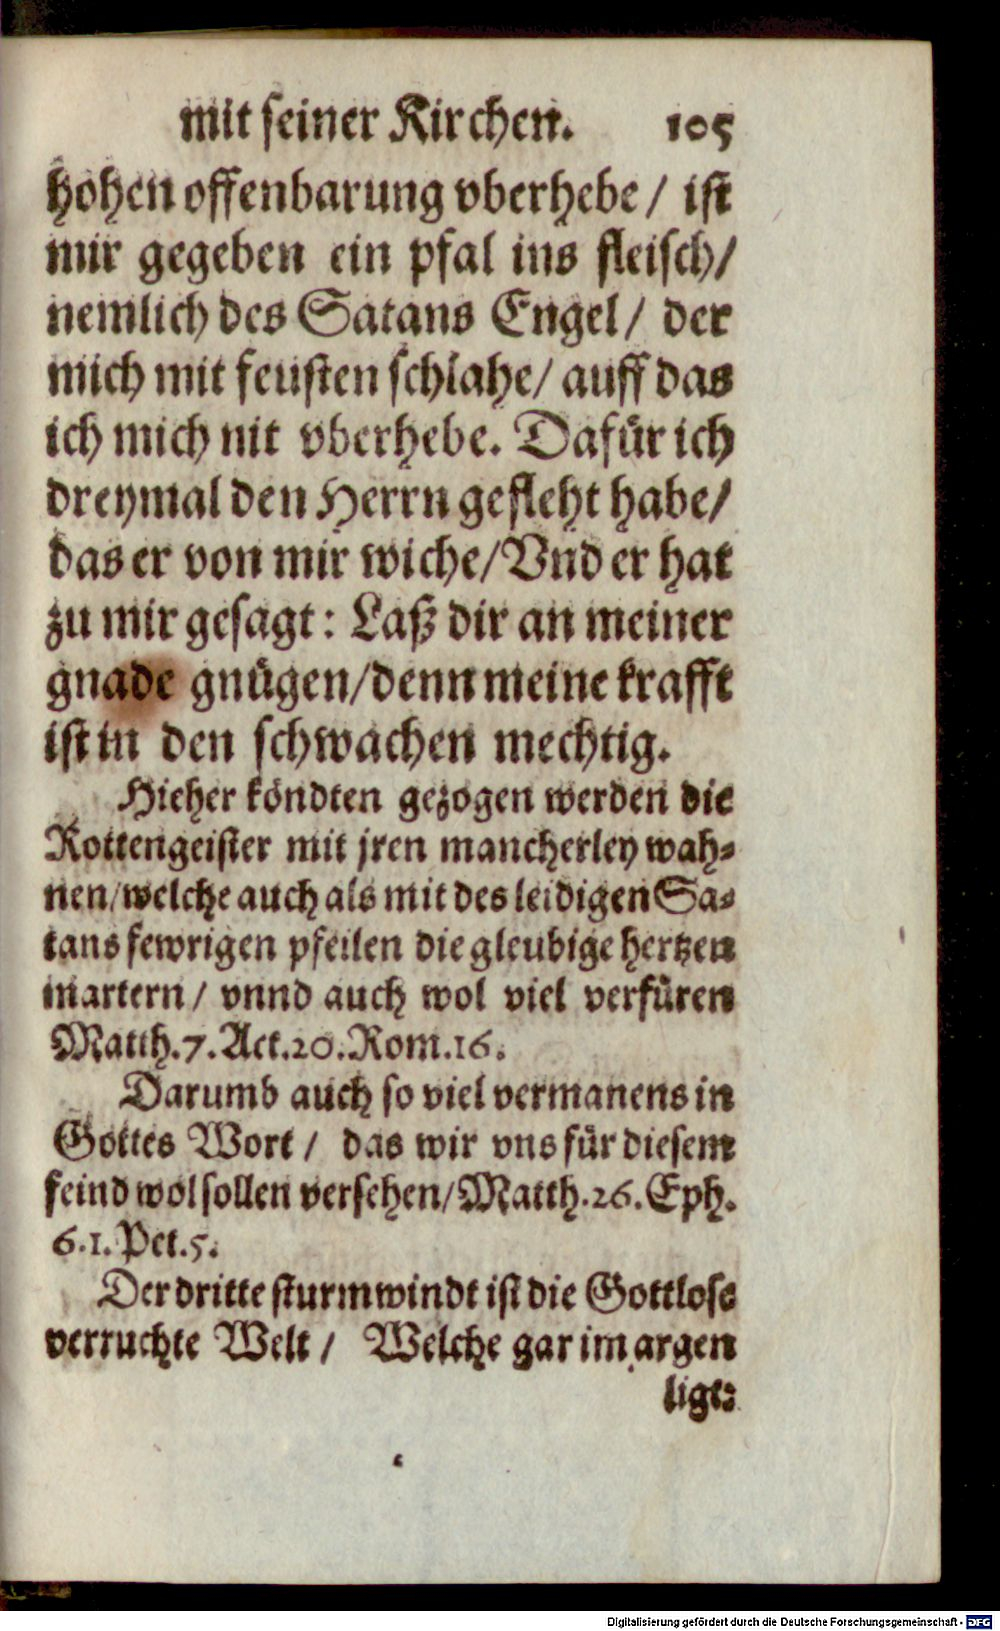 mit seiner Kirchen. 105
hohen offenbarung vberhebe / ist
mir gegeben ein pfal ins fleisch/
nemlich des Satans Engel / der
mich mit feusten schlahe/ auff das
ich mich nit vberhebe. Dafür ich
dreymal den Herrn gefleht habe/
das er von mir wiche/Vnd er hat
zu mir gesagt: Laß dir an meiner
gnade gnügen/denn meine krafft
ist in den schwachen mechtig.
Hieher köndten gezogen werden die
Rottengeister mit jren mancherley wah-
nen/welche auch als mit des leidigen Sa-
tans fewrigen pfeilen die gleubige hertzen
martern / vnnd auch wol viel verfüren
Matth.7.Act.20.Rom.16.
Darumb auch so viel vermanens in
Gottes Wort / das wir vns für diesem
feind wol sollen versehen/Matth.26.Eph.
6.1.Pet.5.
Der dritte sturmwindt ist die Gottlose
verruchte Welt / Welche gar im argen
ligt:
Digitalisierung gefördert durch die Deutsche Forschungsgemeinschaft - DFG